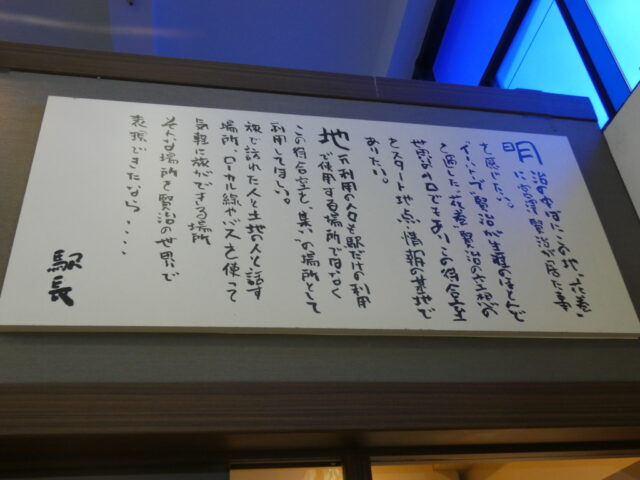 明治の この地・花巻
に宮澤賢治が居た事
を感じたい。
賢治が生前のほとんど
を過した花巻、賢治の空想の
世界の入口でもあり この待合室
をスタート地点・情報の基地で
ありたい。
地元利用の人々も駅だけの利用
で使用する場所ではなく
この待合室を、集いの場所として
利用してほしい。
旅で訪れた人と土地の人と話す
場所・ローカル線やバスを使って
気軽に旅ができる場所
そんな場所を賢治の世界で
表現できたなら・・・・
駅長